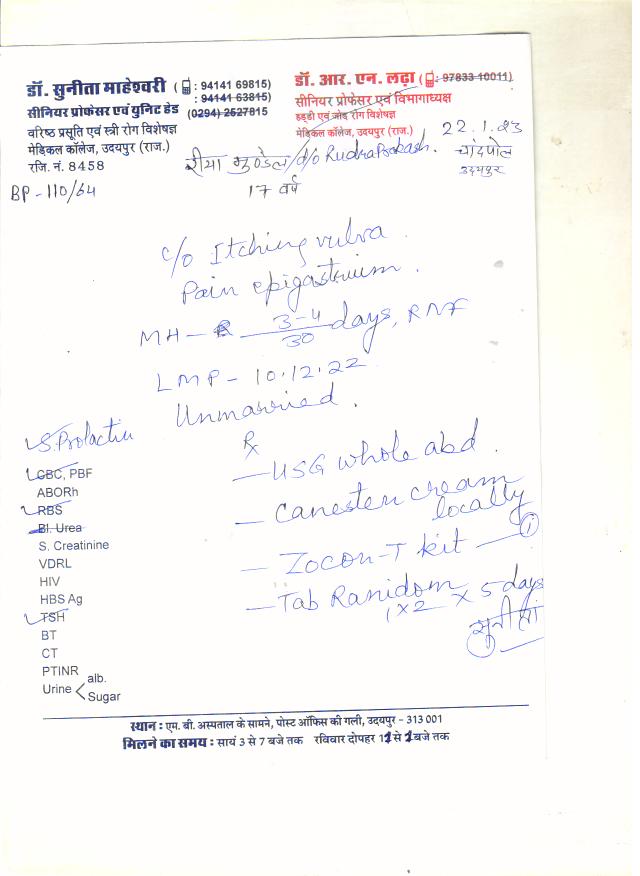 डॉ. सुनीता माहेश्वरी ( : 94141 69815)
: 94141 63815)
सीनियर प्रोफेसर एवं यूनिट हेड (0294) 2527815
वरिष्ठ प्रसूति एवं स्त्री रोग विशेषज्ञ
मेडिकल कॉलेज, उदयपुर (राज.)
रजि. नं. 8458
डॉ. आर. एन. लढ़ा ( : 97833 10011)
सीनियर प्रोफेसर एवं विभागाध्यक्ष
हड्डी एवं जोड़ रोग विशेषज्ञ
मेडिकल कॉलेज, उदयपुर (राज.)
22.1.23
रीया d/o
चांदपोल
उदयपुर
BP-110/64
17 वर्ष
c/o Itching vulva.
Pain epigastrium.
MH - 3-4/30 days, RMF
LMP - 10.12.22
Unmarried.
S. Prolactin
Rx
CBC, PBF
ABORh
RBS
Bl. Urea
S. Creatinine
VDRL
HIV
HBS Ag
TSH
BT
CT
PTINR
Urine < alb.
Sugar
— USG whole abd.
— Canesten cream
locally
— Zocon-T kit — 1
— Tab Ranidom
1x2 x 5 days
स्थान : एम. बी. अस्पताल के सामने, पोस्ट ऑफिस की गली, उदयपुर - 313 001
मिलने का समय : सायं 3 से 7 बजे तक रविवार दोपहर से बजे तक